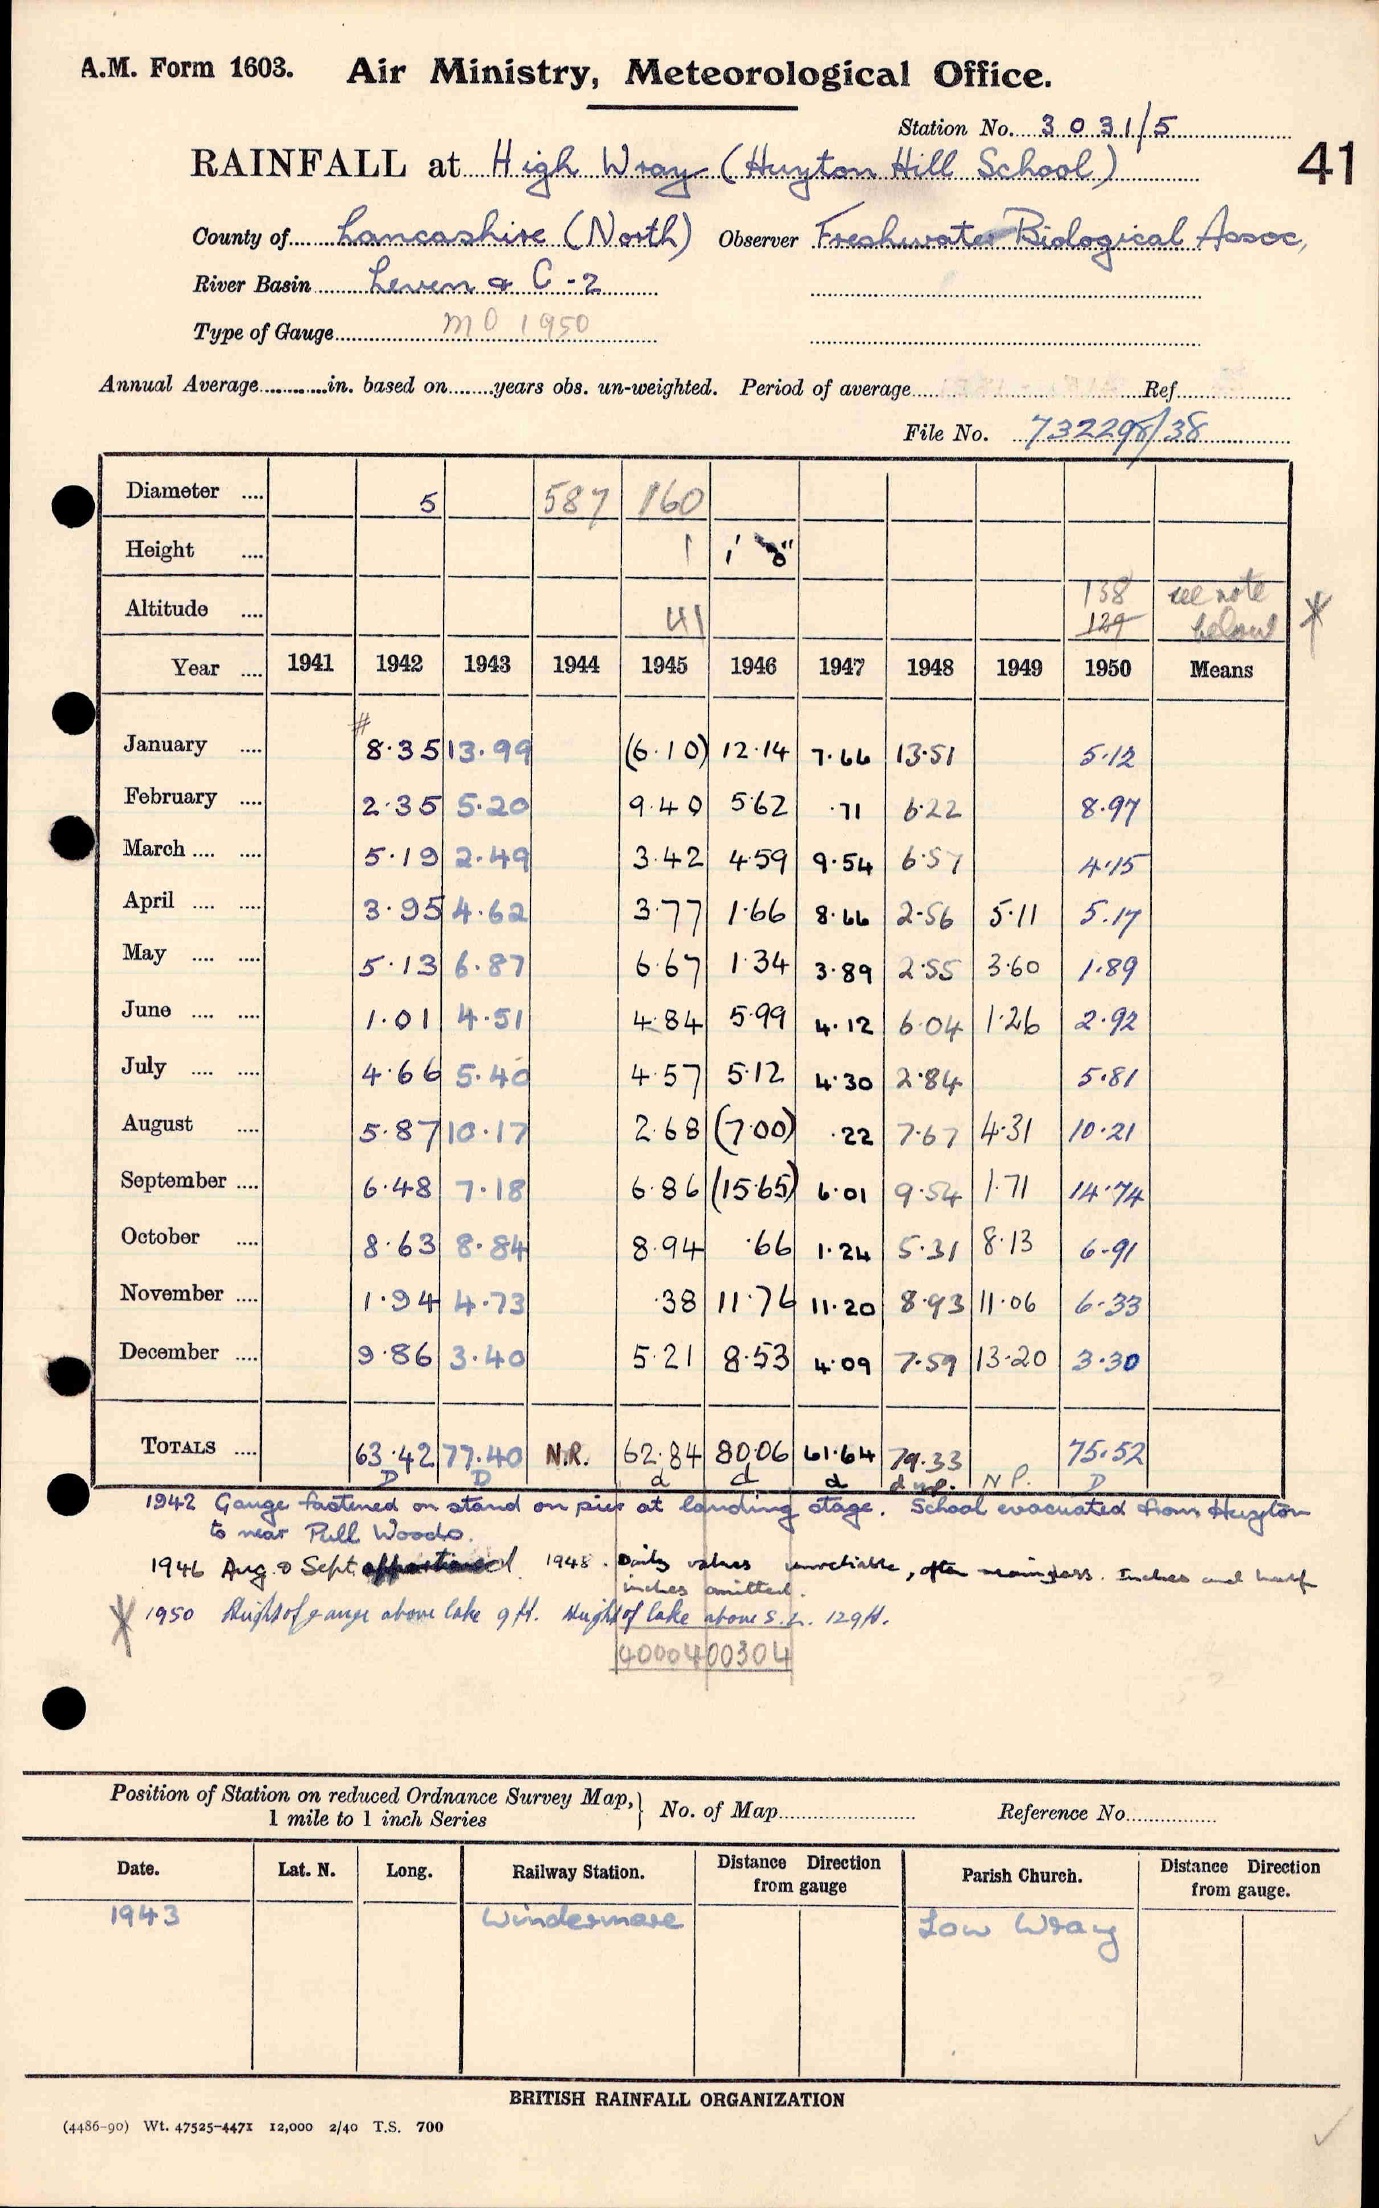 A.M. Form 1603. Air Ministry, Meteorological Office.
Station No. 3031/5
41
RAINFALL at High Wray (Huyton Hill School)
County of Lancashire (North) Observer Freshwater Biological Assoc,
River Basin Leven & C-2
Type of Gauge MO 1950
Annual Average in. based on years obs. un-weighted. Period of average Ref
File No. 732298/38
Diameter 5 587 160
Height 1 1'
138 see note
Altitude 41 129 below *
Year 1941 1942 1943 1944 1945 1946 1947 1948 1949 1950 Means
January #8.35 13.99 (6.10) 12.14 7.66 13.51 5.12
February 2.35 5.20 9.40 5.62 .71 6.22 8.97
March 5.19 2.49 3.42 4.59 9.54 6.57 4.15
April 3.95 4.62 3.77 1.66 8.66 2.56 5.11 5.17
May 5.13 6.87 6.67 1.34 3.89 2.55 3.60 1.89
June 1.01 4.51 4.84 5.99 4.12 6.04 1.26 2.92
July 4.66 5.40 4.57 5.12 4.30 2.84 5.81
August 5.87 10.17 2.68 (7.00) .22 7.67 4.31 10.21
September 6.48 7.18 6.86 (15.65) 6.01 9.54 1.71 14.74
October 8.63 8.84 8.94 .66 1.24 5.31 8.13 6.91
November 1.94 4.73 .38 11.76 11.20 8.93 11.06 6.33
December 9.86 3.40 5.21 8.53 4.09 7.59 13.20 3.30
TOTALS 63.42 77.40 N.R. 62.84 80.06 61.64 79.33 75.52
D D d d d d n.p. N P. D
1942 Gauge fastened on stand on pier at landing stage. School evacuated from Huyton
to near Pull Woods.
1946 Aug. & Sept. apportioned. 1948. Daily values unreliable, often meaningless. Inches and half
inches omitted.
* 1950 Height of gauge above lake 9 ft. Height of lake above S.L. 129 ft.
40004 00304
Position of Station on reduced Ordnance Survey Map,} No. of Map Reference No
1 mile to 1 inch Series
Date. Lat. N. Long. Railway Station. Distance Direction from gauge Parish Church. Distance Direction from gauge.
1943 Windermere Low Wray
BRITISH RAINFALL ORGANIZATION
(4486-90) Wt. 47525-4471 12,000 2/40 T.S. 700